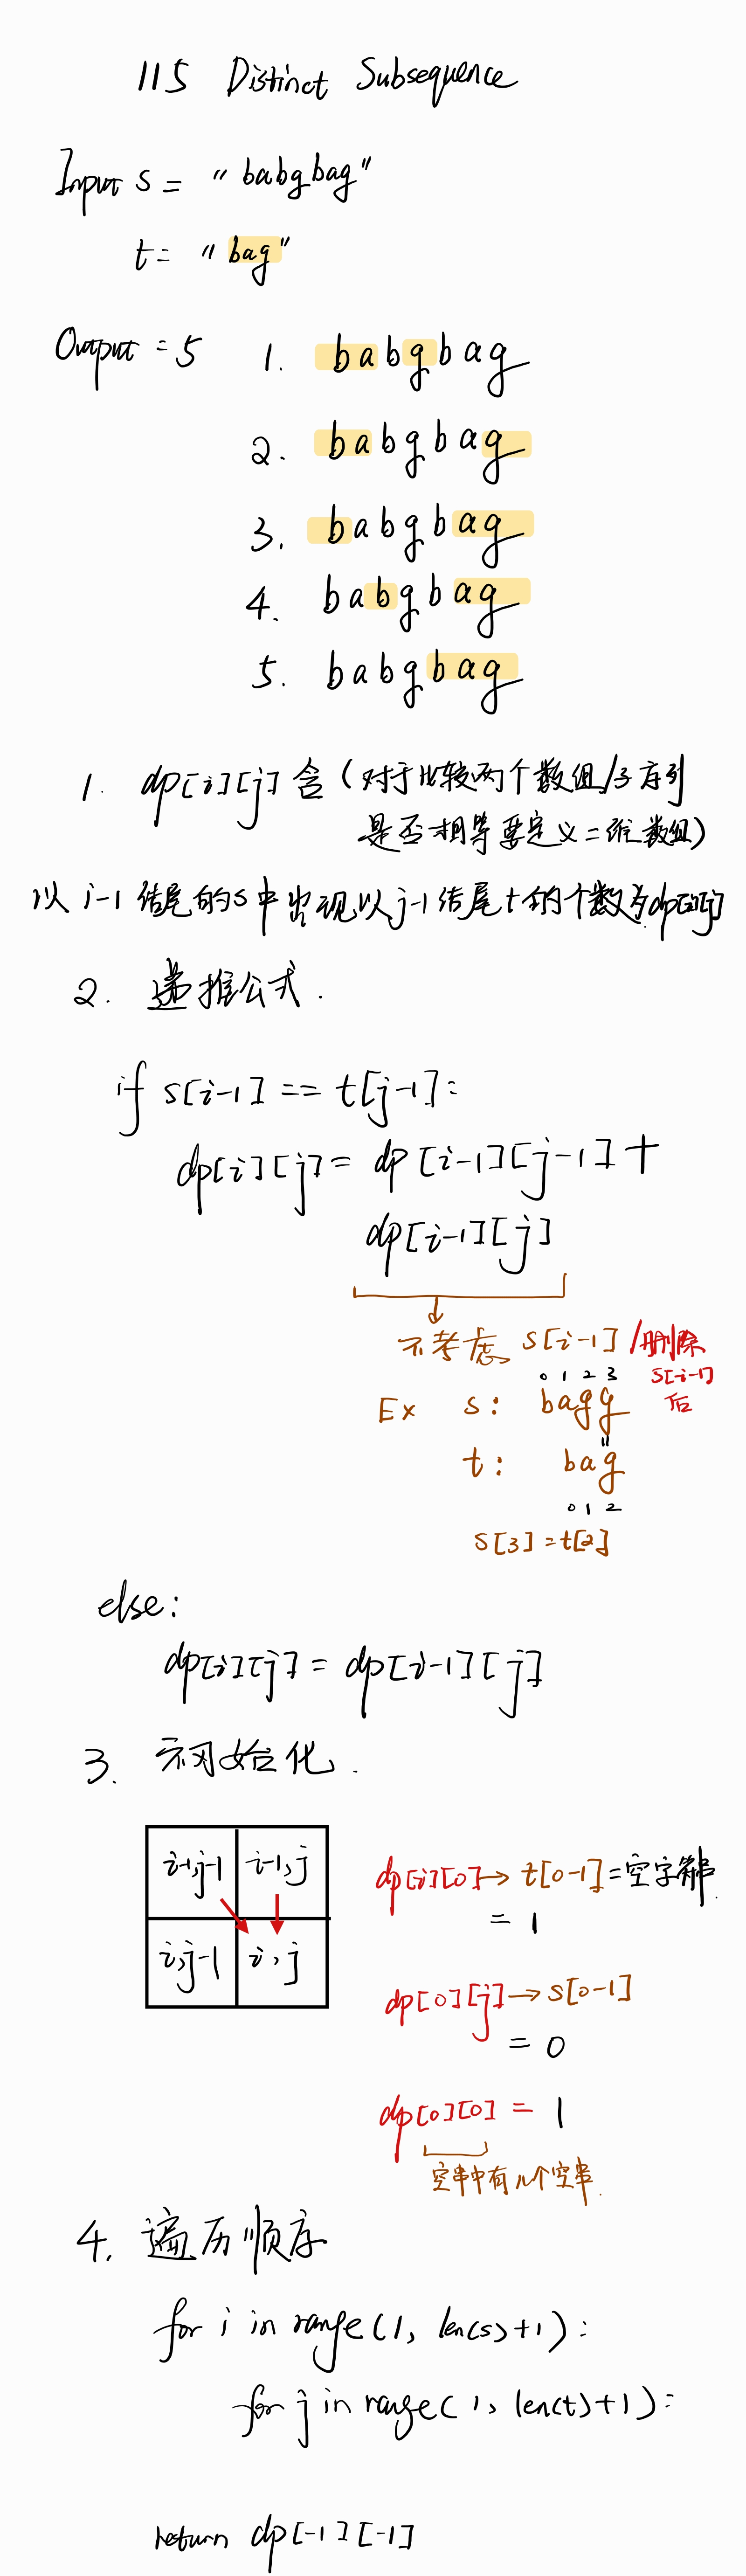 115 Distinct Subsequence
Input s = "babgbag"
t = "bag"
Output = 5
1. babgbag
2. babgbag
3. babgbag
4. babgbag
5. babgbag
1. dp[i][j] 含 (对于比较两个数组/子序列
是否相等要定义二维数组)
以 i-1 结尾的s中出现以j-1结尾t的个数为dp[i][j]
2. 递推公式.
if s[i-1] == t[j-1]:
dp[i][j] = dp[i-1][j-1] +
dp[i-1][j]
不考虑 s[i-1] /删除
s[i-1]
后
0 1 2 3
Ex s: bagg
"
t: bag
0 1 2
s[3] = t[2]
else:
dp[i][j] = dp[i-1][j]
3. 初始化.
i-1,j-1 i-1,j
i,j-1 i,j
dp[i][0] → t[0-1] = 空字符串.
= 1
dp[0][j] → s[0-1]
= 0
dp[0][0] = 1
空串中有几个空串.
4. 遍历顺序
for i in range(1, len(s)+1):
for j in range(1, len(t)+1):
return dp[-1][-1]